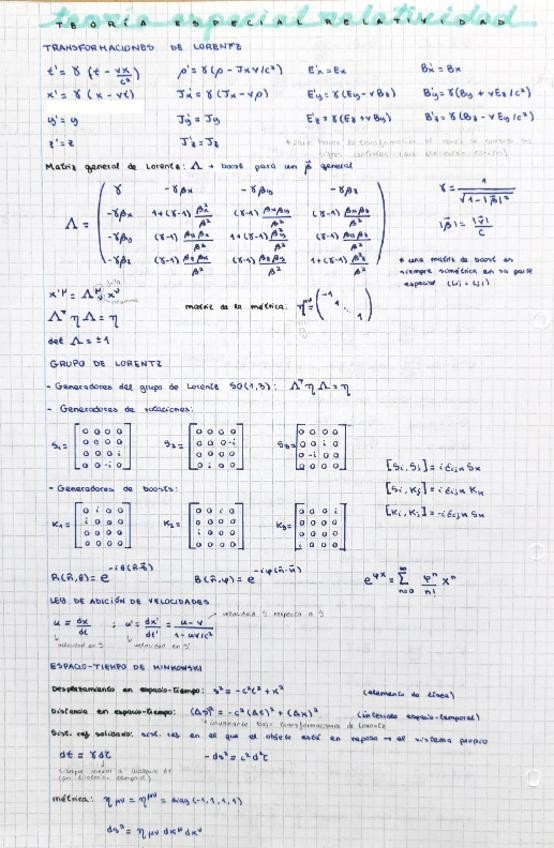 TEORÍA ESPECIAL RELATIVIDAD
TRANSFORMACIONES DE LORENTZ
t' = γ (t - vx/c²)   ρ' = γ(ρ - Jx v/c²)   E'x = Ex   B'x = Bx
x' = γ (x - vt)   J'x = γ(Jx - vρ)   E'y = γ(Ey - vBz)   B'y = γ(By + vEz/c²)
y' = y   J'y = Jy   E'z = γ(Ez + vBy)   B'z = γ(Bz - vEy/c²)
z' = z   J'z = Jz
Matriz general de Lorentz: Λ → boost para un β⃗ general
Λ = ( γ   -γβx   -γβy   -γβz
-γβx   1+(γ-1) βx²/β²   (γ-1) βxβy/β²   (γ-1) βxβz/β²
-γβy   (γ-1) βyβx/β²   1+(γ-1) βy²/β²   (γ-1) βyβz/β²
-γβz   (γ-1) βzβx/β²   (γ-1) βzβy/β²   1+(γ-1) βz²/β² )
γ = 1/√(1-|β⃗|²)
|β⃗| = |v⃗|/c
* una matriz de boost es
siempre simétrica en su parte
espacial (Lij = Lji)
x'^μ = Λ^μ_ν x^ν
matriz de la métrica: η^μν = (-1 1 ... 1)
Λᵀ η Λ = η
det Λ = ±1
GRUPO DE LORENTZ
- Generadores del grupo de Lorentz SO(1,3): Λᵀ η Λ = η
- Generadores de rotaciones:
S₁ = [ 0 0 0 0 / 0 0 0 0 / 0 0 0 i / 0 0 -i 0 ]   S₂ = [ 0 0 0 0 / 0 0 0 -i / 0 0 0 0 / 0 i 0 0 ]   S₃ = [ 0 0 0 0 / 0 0 i 0 / 0 -i 0 0 / 0 0 0 0 ]
[Si, Sj] = i εijk Sk
[Si, Kj] = i εijk Kk
[Ki, Kj] = -i εijk Sk
- Generadores de boosts:
K₁ = [ 0 i 0 0 / i 0 0 0 / 0 0 0 0 / 0 0 0 0 ]   K₂ = [ 0 0 i 0 / 0 0 0 0 / i 0 0 0 / 0 0 0 0 ]   K₃ = [ 0 0 0 i / 0 0 0 0 / 0 0 0 0 / i 0 0 0 ]
R(n̂,θ) = e^{-iθ(n̂·S⃗)}   B(n̂,φ) = e^{-iφ(n̂·K⃗)}   e^{φX} = Σ_{n=0}^{∞} φⁿ/n! Xⁿ
LEY DE ADICIÓN DE VELOCIDADES
velocidad S' respecto a S
u = dx/dt ; u' = dx'/dt' = u - v / 1 - uv/c²
velocidad en S   velocidad en S'
ESPACIO-TIEMPO DE MINKOWSKI
Desplazamiento en espacio-tiempo: s² = -c²t² + x²   (elemento de línea)
Distancia en espacio-tiempo: (Δs)² = -c²(Δt)² + (Δx)²   (intervalo espacio-temporal)
invariante bajo transformaciones de Lorentz
Sist. ref solidario: sist. ref en el que el objeto está en reposo → el sistema propio
dt = γ dτ   -ds² = c² d²τ
métrica: ημν = η^μν = diag(-1,1,1,1)
ds² = ημν dx^μ dx^ν